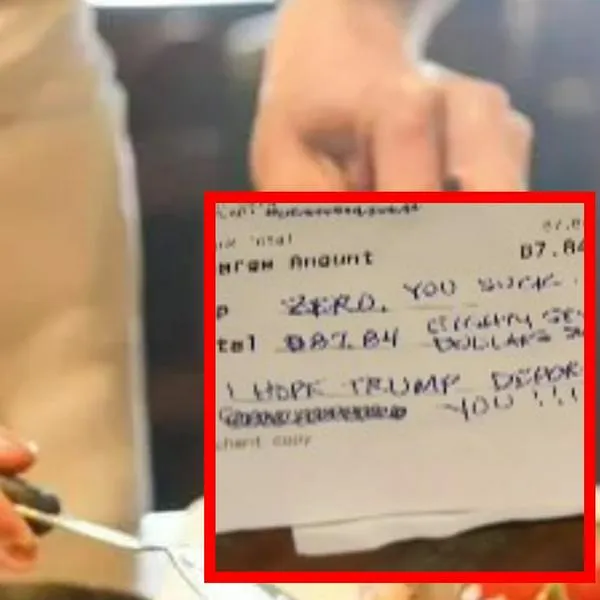 Amount 87.8
p ZERO. YOU SUCK
tal $87.84 EIGHTY SE
DOLLARS
I HOPE TRUMP DEPOR
YOU !!!
chant copy